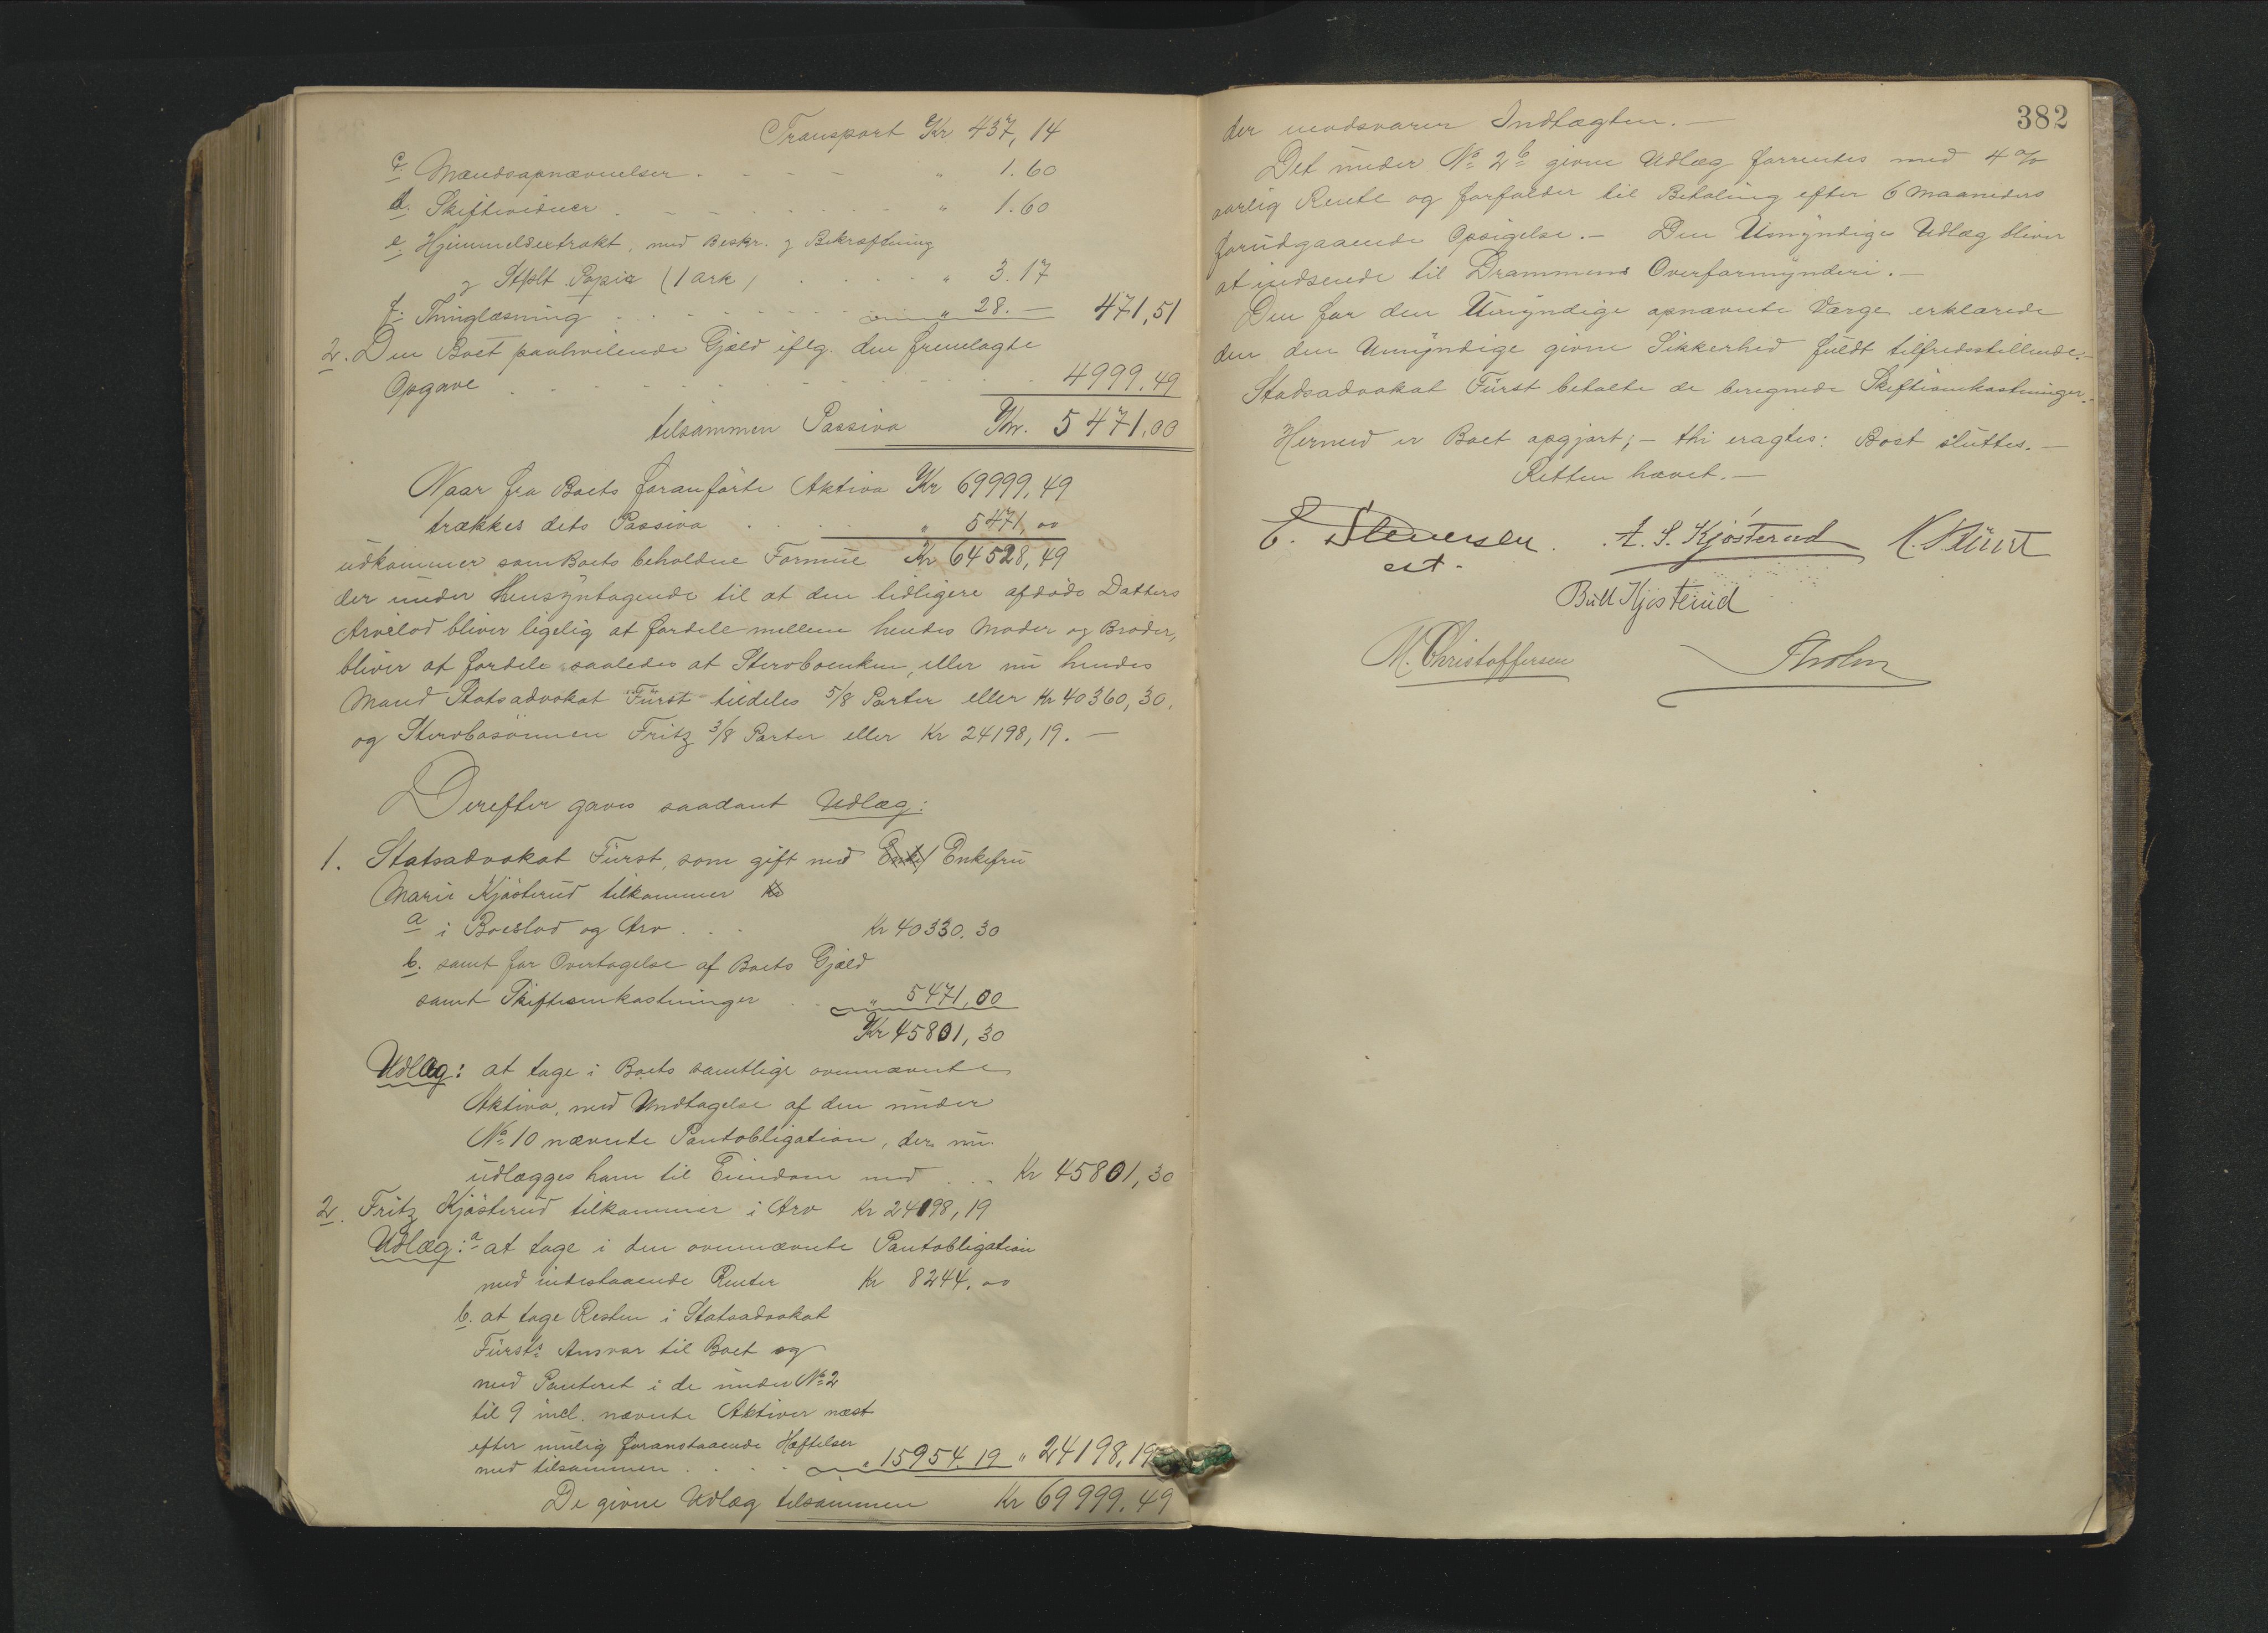 Transport Kr 437,14
c. Mændsopnævnelser . - - - " 1.60
d. Skiftevidner . - - - - - " 1.60
e. Hjemmelsextrakt, med Beskr. og Bekræftning
og Stplt Papir (1 ark) . . . . " 3.17
f. Thinglæsning . . . . . . " 28.— 471,51
2. Den Boet paahvilende Gjæld iflg. den fremlagte
Opgave . . . . . . . . 4999.49
tilsammen Passiva Kr. 5471,00
Naar fra Boets foranførte Aktiva Kr 69999,49
trækkes dets Passiva . . . . " 5471,00
udkommer som Boets beholdne Formue Kr 64528,49
der under Hensyntagende til at den tidligere afdøde Datters
Arvelod bliver ligelig at fordele mellem hendes Moder og Broder,
bliver at fordele saaledes at Stervboenken, eller nu hendes
Mand Statsadvokat Fürst tildeles 5/8 Parter eller Kr 40360,30,
og Stervbosønnen Fritz 3/8 Parter eller Kr 24198,19. —
Derefter gaves saadant Udlæg:
1. Statsadvokat Fürst, som gift med Enke/ Enkefru
Marie Kjøsterud tilkommer Kr
a i Boeslod og Arv . . - Kr 40330.30
b. samt for Overtagelse af Boets Gjæld
samt Skifteomkostninger . . " 5471,00
Kr 45801,30
Udlæg: at tage i Boets samtlige ovennævnte
Aktiva, med Undtagelse af den under
No 10 nævnte Pantobligation, der nu
udlægges ham til Eiendom med . . . Kr 45801,30
2. Fritz Kjøsterud tilkommer i Arv Kr 24198,19
Udlæg: a at tage i den ovennævnte Pantobligation
med indestaaende Renter Kr 8244.00
b. at tage Resten i Statsadvokat
Fürsts Ansvar til Boet og
med Panteret i de under No 2
til 9 incl. nævnte Aktiver næst
efter mulig foranstaaende Hæftelser
med tilsammen . . . . " 15954.19 " 24198,19
De givne Udlæg tilsammen Kr 69999.49
382
der modsvarer Indtægten. —
Det under No 2 b givne Udlæg forrentes med 4 %
aarlig Rente og forfalder til Betaling efter 6 Maaneders
forudgaaende Opsigelse. — Den Umyndiges Udlæg bliver
at indsende til Drammens Overformynderi. —
Den for den Umyndige opnævnte Værge erklærede
den den Umyndige givne Sikkerhed fuldt tilfredsstillende. —
Stadsadvokat Fürst betalte de beregnede Skifteomkostninger. —
Hermed er Boet opgjort; — thi eragtes: Boet sluttes. —
Retten hævet. —
E. Steversen. A. S. Kjøsterud
cst.
Bull Kjøsterud
M. Christoffersen